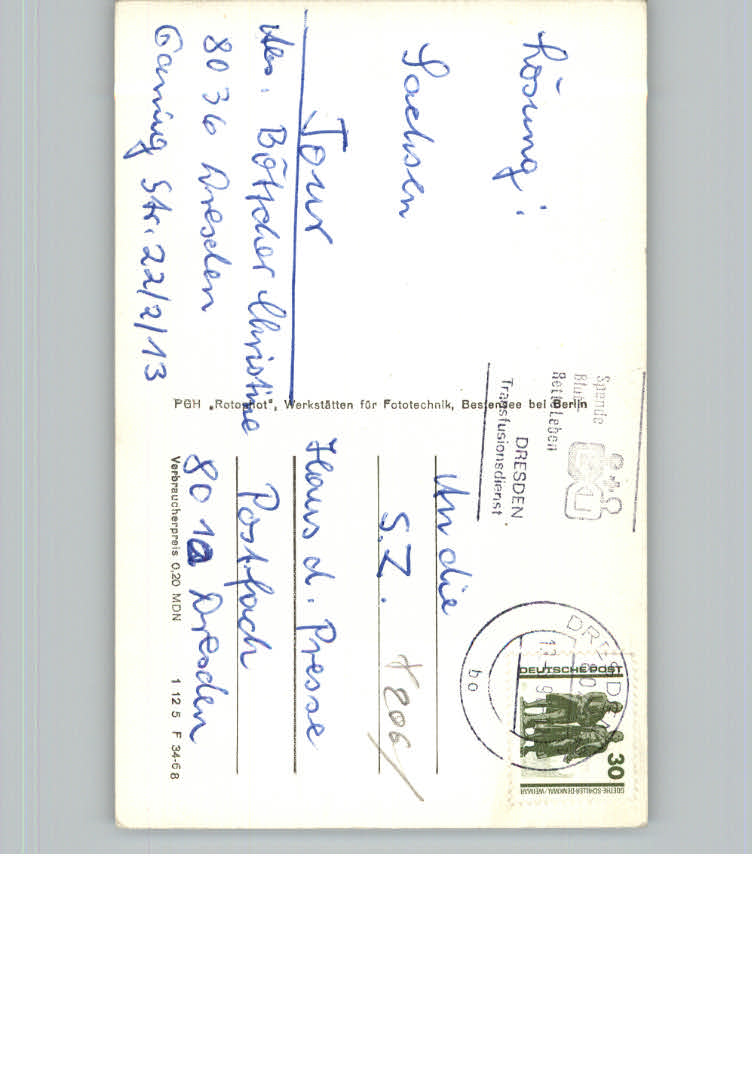 Lösung:
Sachsen
Tour
Abs. Böttcher Christine
8036 Dresden
Gaming Str. 22/2/13
PGH „Rotophot“, Werkstätten für Fototechnik, Bestensee bei Berlin
Spende
Blut
Rette Leben
DRK
DRESDEN
Transfusionsdienst
DRESDEN
bo
DEUTSCHE POST
30
GOETHE-SCHILLER-DENKMAL/WEIMAR
An die
S.Z.
Haus d. Presse
Postfach
801a Dresden
Verbraucherpreis 0,20 MDN
1 12 5 F 34-68